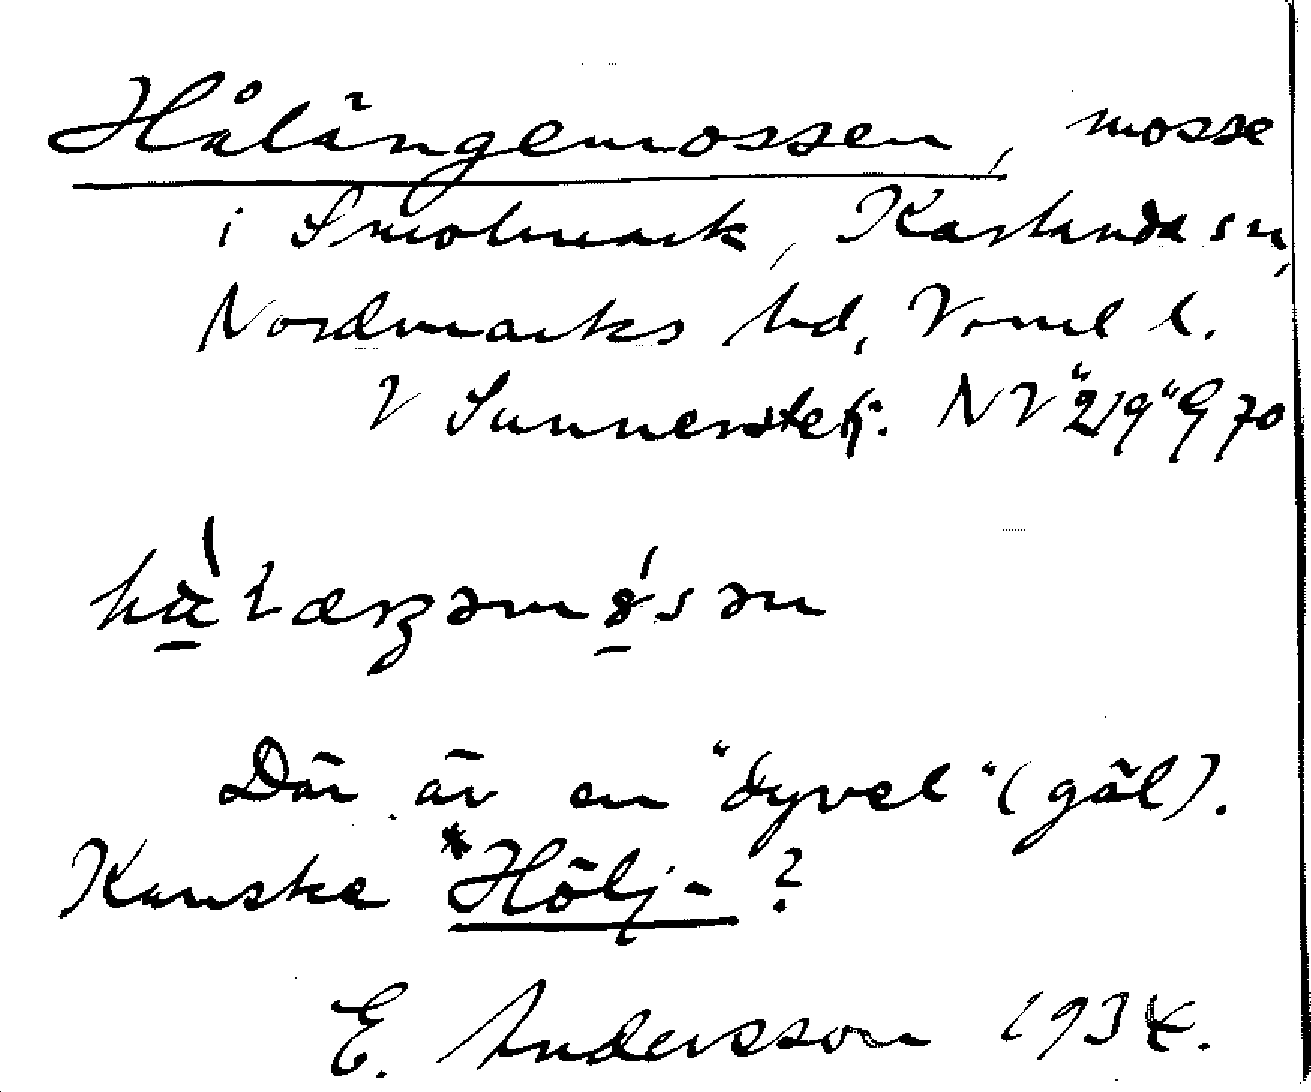 Hålängemossen, mosse
i Smolmark, Karlanda sn,
Nordmarks hd, Vrml l.
V Sunnerstek. NV "2/9" G 70
Där är en "dyvel" (göl).
Kanske *Hölj- ?
E. Andersson 1934.